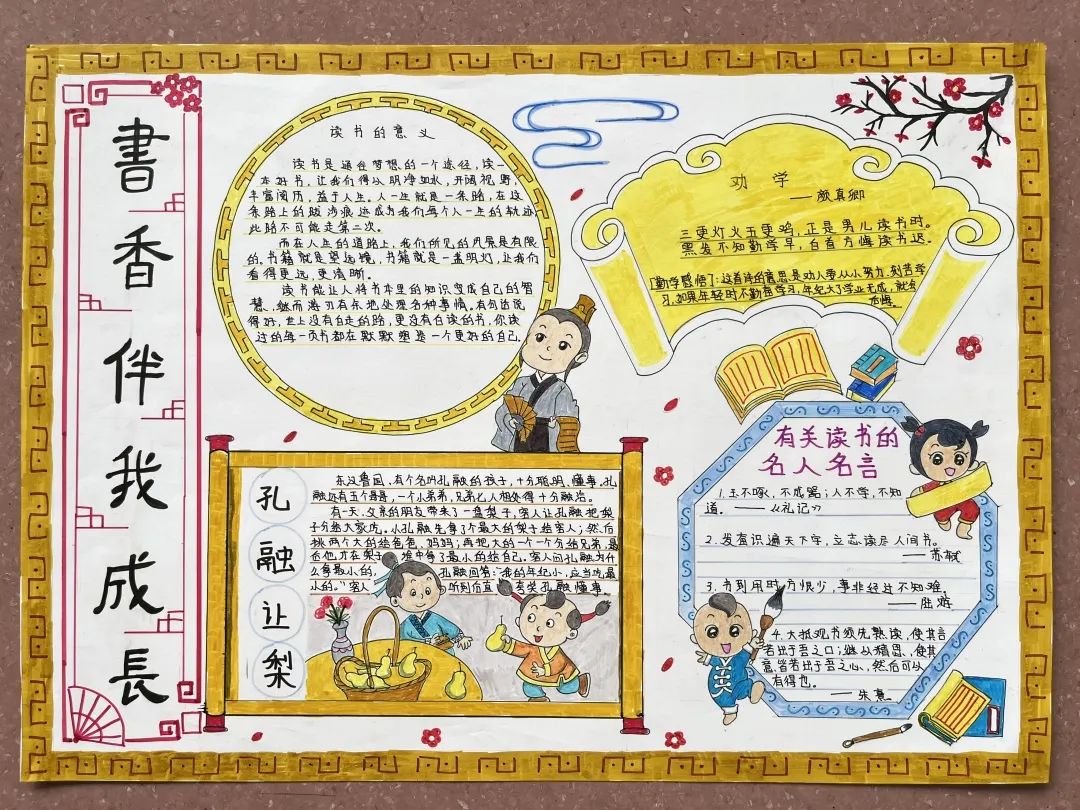 書香伴我成長
读书的意义
读书是通往梦想的一个途径，读一
本好书，让我们得以明净如水，开阔视野，
丰富阅历，益于人生。人一生就是一条路，在这
条路上的跋涉痕迹成为我们每个人一生的轨迹
此路不可能走第二次。
而在人生的道路上，我们所见的风景是有限
的，书籍就是望远镜，书籍就是一盏明灯，让我们
看得更远，更清晰。
读书能让人将书本里的知识变成自己的智
慧，继而游刃有余地处理各种事情。有句话说
得好，世上没有白走的路，更没有白读的书，你读
过的每一页书都在默默塑造一个更好的自己
劝学
——颜真卿
三更灯火五更鸡，正是男儿读书时。
黑发不知勤学早，白首方悔读书迟。
「勤学感悟」：这首诗的意思是劝人要从小努力，刻苦学
习，如果年轻时不勤奋学习，年纪大了学业无成，就会
后悔。
孔融让梨
东汉鲁国，有个名叫孔融的孩子，十分聪明，懂事，孔
融还有五个哥哥，一个小弟弟，兄弟七人相处得十分融洽。
有一天，父亲的朋友带来了一盘梨子，客人让孔融把梨
子分给大家吃。小孔融先拿了个最大的梨子给客人；然后
挑两个大的给爸爸、妈妈；再把大的一个一个分给兄弟，最
后他才在梨子 中拿了最小的给自己。客人问孔融为什
么拿最小的， 孔融回答：我的年纪小，应当吃最
小的。"客人 听到后直 夸奖孔融懂事。
有关读书的
名人名言
1.玉不啄，不成器；人不学，不知
道。——《礼记》
2.发奋识遍天下字，立志读尽人间书。
——苏轼
3.书到用时方恨少，事非经过不知难。
——陆游
4.大抵观书须先熟读，使其言
若出于吾之口；继以精思，使其
意皆若出于吾之心，然后可以
有得也。
——朱熹